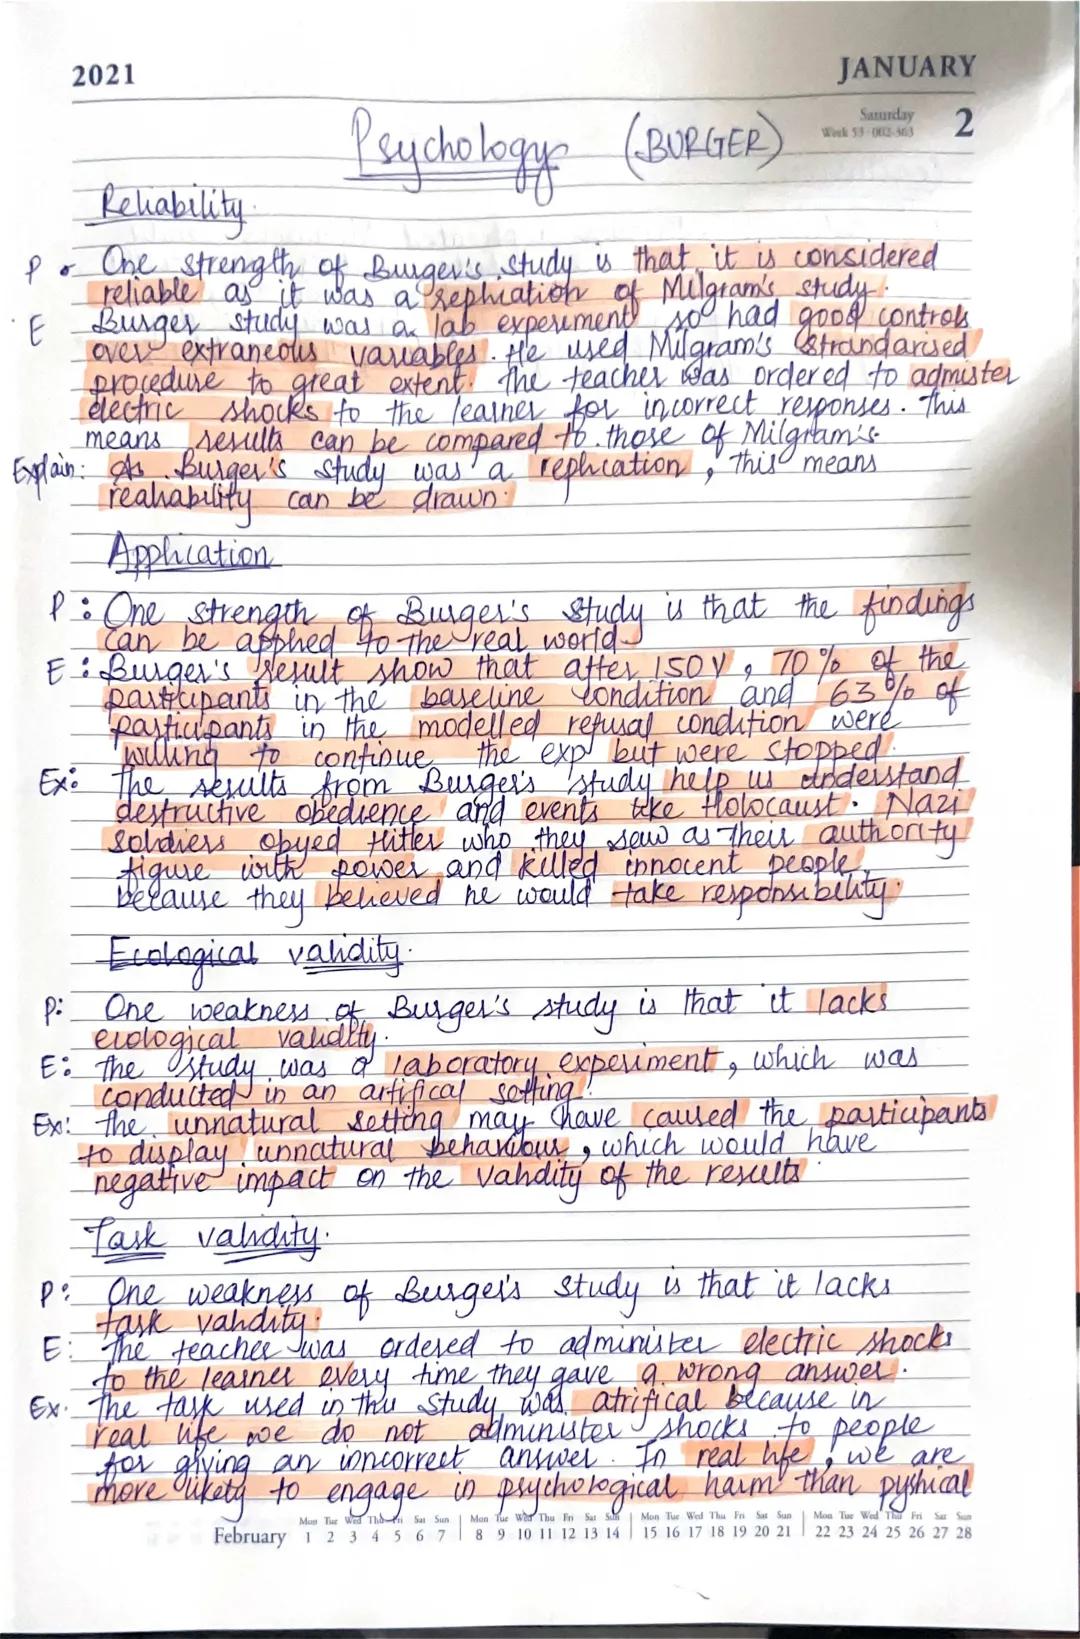 2021 JANUARY
Saturday
Week 53 · 002-363 2
Psychology (BURGER)
Reliability.
P • One strength of Burger's study is that it is considered
reliable as it was a replication of Milgram's study.
E Burger study was a lab experiment so had good controls
over extraneous variables. He used Milgram's strandarised
procedure to great extent. The teacher was ordered to admister
electric shocks to the learner for incorrect responses. This
means results can be compared to those of Milgram's.
Explain: As Burger's study was a replication, this means
reahability can be drawn.
Application
P: One strength of Burger's study is that the findings
can be applied to the real world.
E: Burger's result show that after 150V, 70% of the
participants in the baseline condition and 63% of
participants in the modelled refusal condition were
willing to continue the exp but were stopped.
Ex: The results from Burger's study help us understand
destructive obedience and events like Holocaust. Nazi
soldiers obyed Hitler who they saw as their authority
figure with power and killed innocent people
because they believed he would take responsibility.
Ecological validity.
P: One weakness of Burger's study is that it lacks
ecological validity.
E: The study was a laboratory experiment, which was
conducted in an artifical setting.
Ex: The unnatural setting may have caused the participants
to display unnatural behavious, which would have
negative impact on the validity of the results
Task validity.
P: One weakness of Burger's study is that it lacks
task validity.
E: The teacher was ordered to administer electric shocks
to the learner every time they gave a wrong answer.
Ex. The task used in this study was atrifical because in
real life we do not administer shocks to people
for giving an inncorrect answer. In real life, we are
more likely to engage in psychological harm than pyshical
Mon Tue Wed Thu Fri Sat Sun Mon Tue Wed Thu Fri Sat Sun Mon Tue Wed Thu Fri Sat Sun Mon Tue Wed Thu Fri Sat Sun
February 1 2 3 4 5 6 7 8 9 10 11 12 13 14 15 16 17 18 19 20 21 22 23 24 25 26 27 28